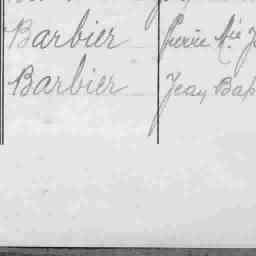 Barbier Pierre Mie J
Barbier Jean Bap